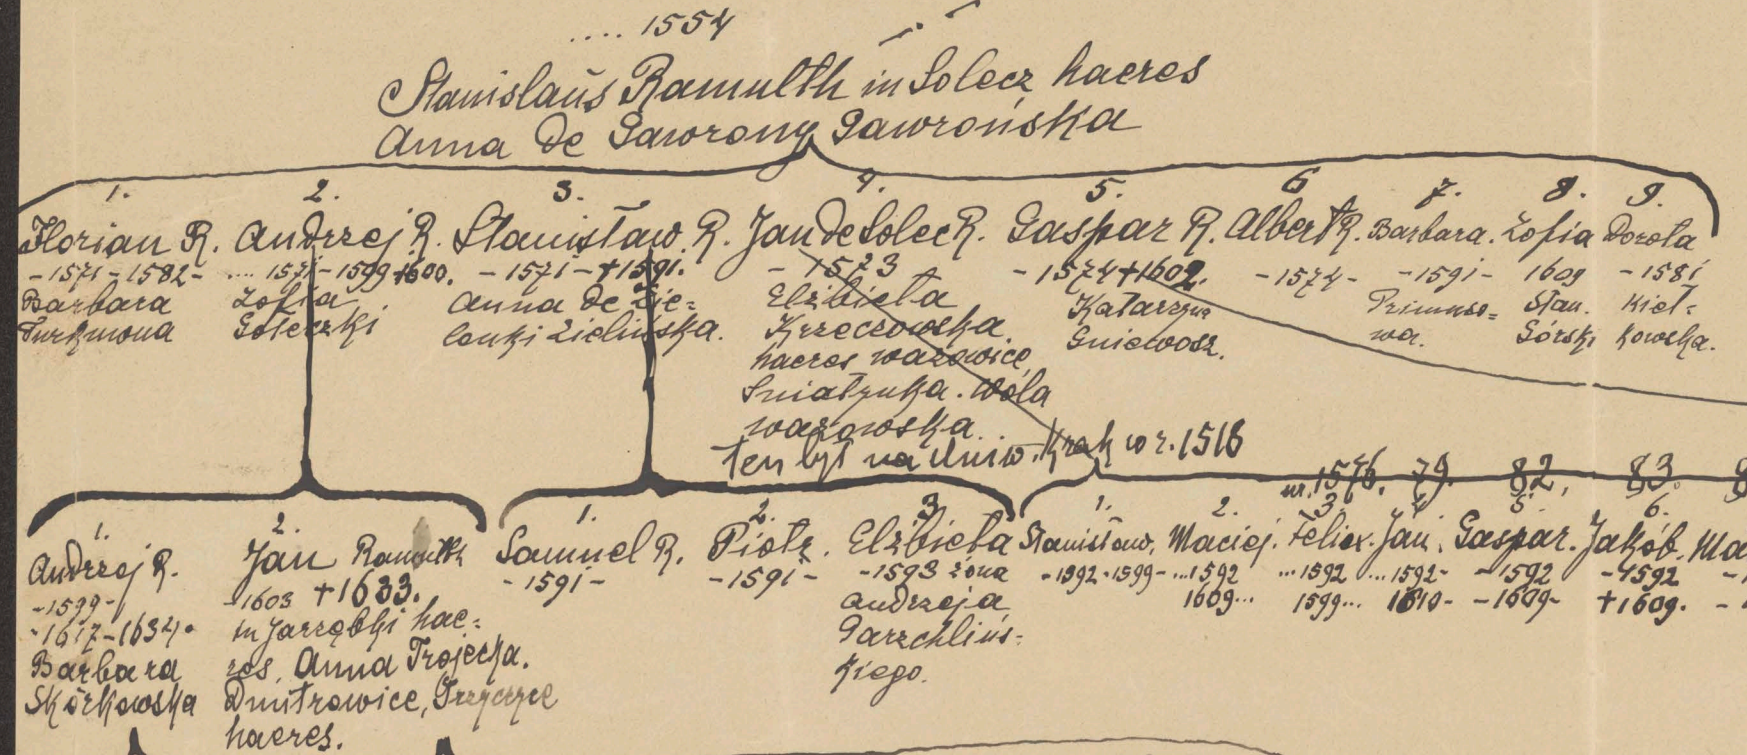 .... 1554
Stanislaus Ramulth in Solecz haeres
Anna de Gawrony Gawrońska
1.
Florian R.
-1571-1582-
Barbara
2.
Andrzej R.
.... 1571-1599+1600.
Zofia
3.
Stanisław R.
-1571-+1591.
Anna de Zie=
Zielińska.
4.
Jan de Solec R.
-1573
Elżbieta
Krzeczowska
haeres
Wola
ten był na Uniw. Krak w r. 1518
5.
Gaspar R.
-1574+1602.
Katarzyna
Gniewosz.
6
Albert R.
-1574-
7.
Barbara.
-1591-
8.
Zofia
1609
Stan.
Górski
9.
Dorota
-1581
Kieł=
kowska.
1.
Andrzej R.
-1599-
-1617-1634.
Barbara
Skórkowska
2.
Jan Ramułth
-1603 +1633.
in Jarząbki hae=
res, Anna Trojecka.
Dmitrowice,
haeres.
1.
Samuel R.
-1591-
2.
Piotr.
-1591-
3
Elżbieta
-1593 żona
Andrzeja
Parzchlińs=
kiego.
ur. 1576. 79. 82, 83. 8
1.
Stanisław.
-1592-1599-
2.
Maciej.
...1592
1609...
3.
Felix.
...1592
1599...
4
Jan.
...1592-
1610-
5.
Gaspar.
-1592
-1609-
6.
Jakób.
-1592
+1609.
Ma